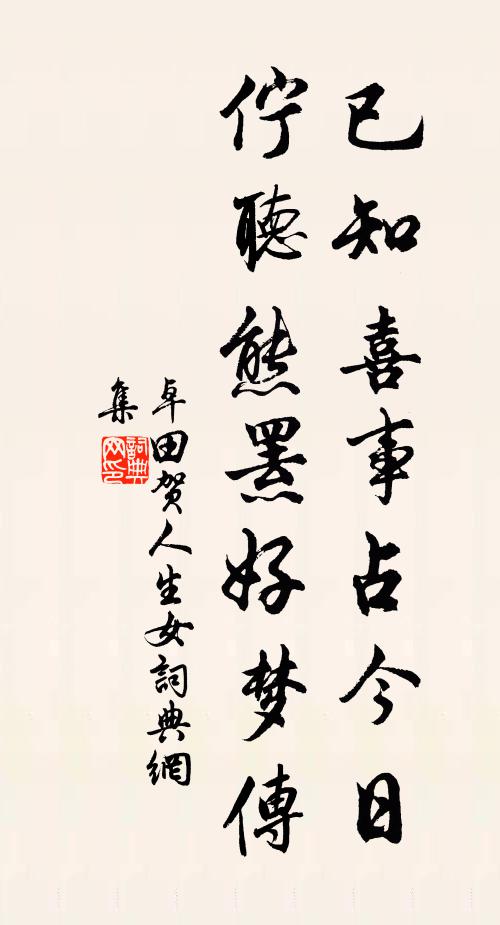 已知喜事占今日
佇聽熊羆好梦傳
卓田贺人生女詞典網
集
詞典
网印